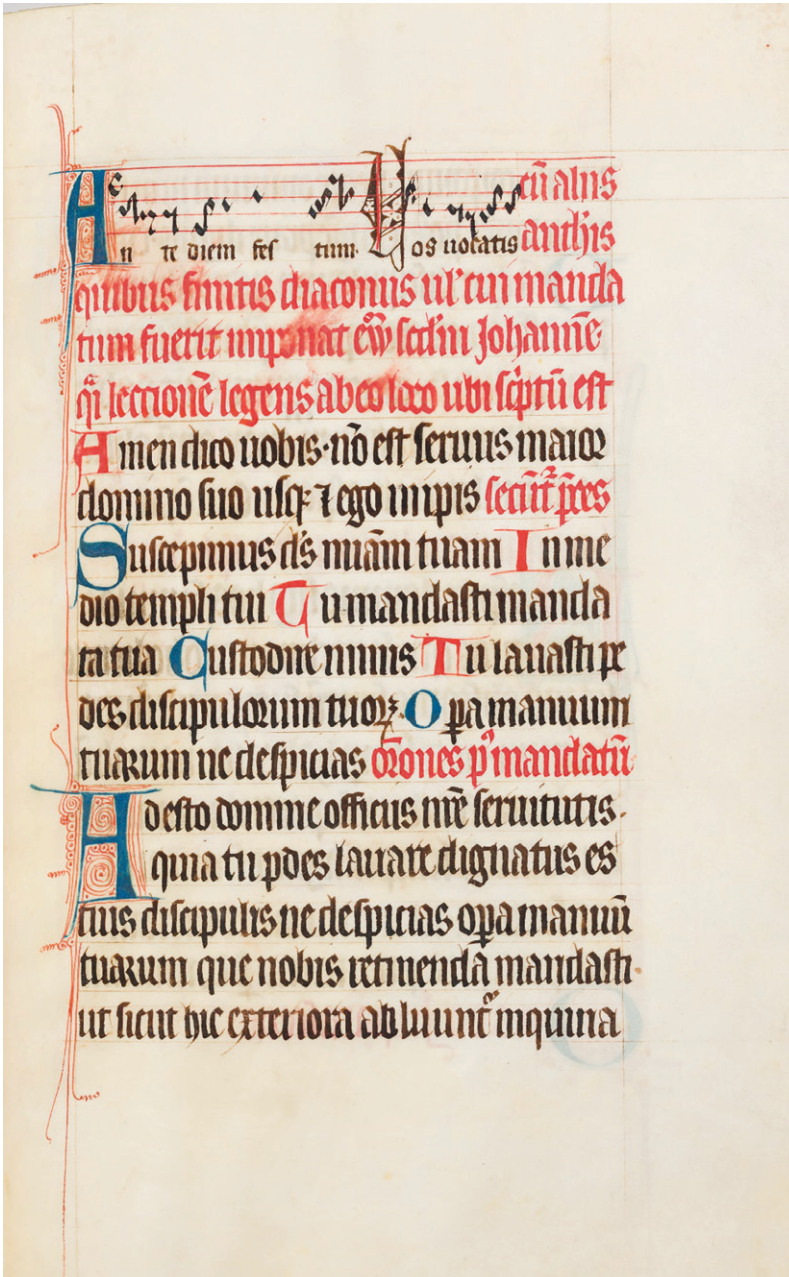 An te diem fes tum. Vos uocatis cũ aliis
antħis
quibus finitis diaconus ul' cui manda
tum fuerit imponat ew̄ scd'm Johanne
q̄i lectionē legens ab eo loco ubi sc̓ptū est
Amen dico uobis· nō est seruus maior
domino suo usqꝫ ⁊ ego in ip̄is secūt᷑ p̄ces
Suscepimus d̄s mīam tuam In me
dio templi tui Tu mandasti manda
ta tua Custodire nimis Tu lauasti pe
des discipulorum tuorꝫ· Opa manuum
tuarum ne despicias or̄ones p̓ mandatū
Adesto domine officiis nr̄e seruitutis·
quia tu pedes lauare dignatus es
tuis discipulis ne despicias opa manuū
tuarum que nobis retinenda mandasti·
ut sicut hic exteriora abluunt᷑ inquina